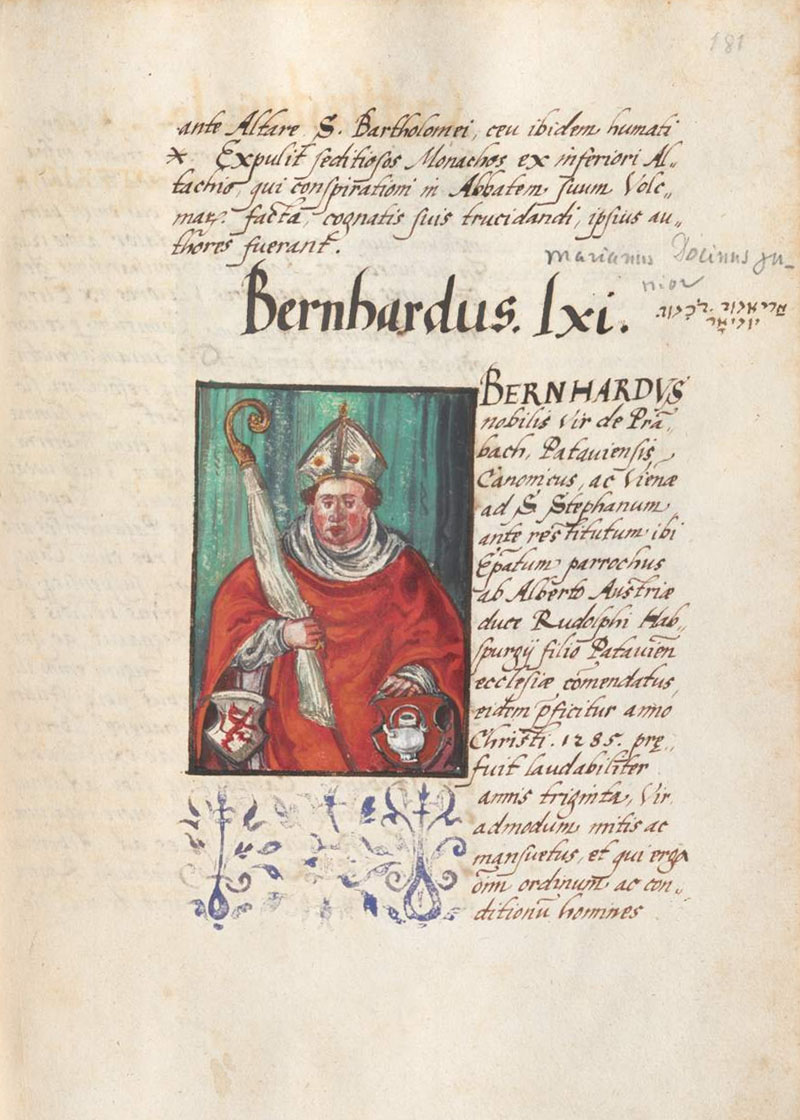 181
ante Altare S. Bartholomei, ceu ibidem humati
X. Expulit seditiosos Monachos ex inferiori Al„
tacho, qui conspirationi in Abbatem suum Volc„
mar: facta, cognatis suis trucidandi, ipsius au„
thores fuerant.
marianus Docinus ju_
nior
Bernhardus. lxi.
יוניאר
BERNHARDVS
nobilis Vir de Prā„
bach, Patauiensis
Canonicus, ac Vienæ
ad S Stephanum
ante restitutum ibi
Epatum parrochus
ab Alberto Austriæ
duce Rudolphi Hab„
spurgij filio Patauien̄
ecclesiæ cōmendatus,
eidem p̄ficitur anno
Christi. 1285. prę„
fuit laudabiliter
annis triginta, Vir
admodum mitis ac
mansuetus, et qui erga
om̄ ordinum ac con„
ditionū homines